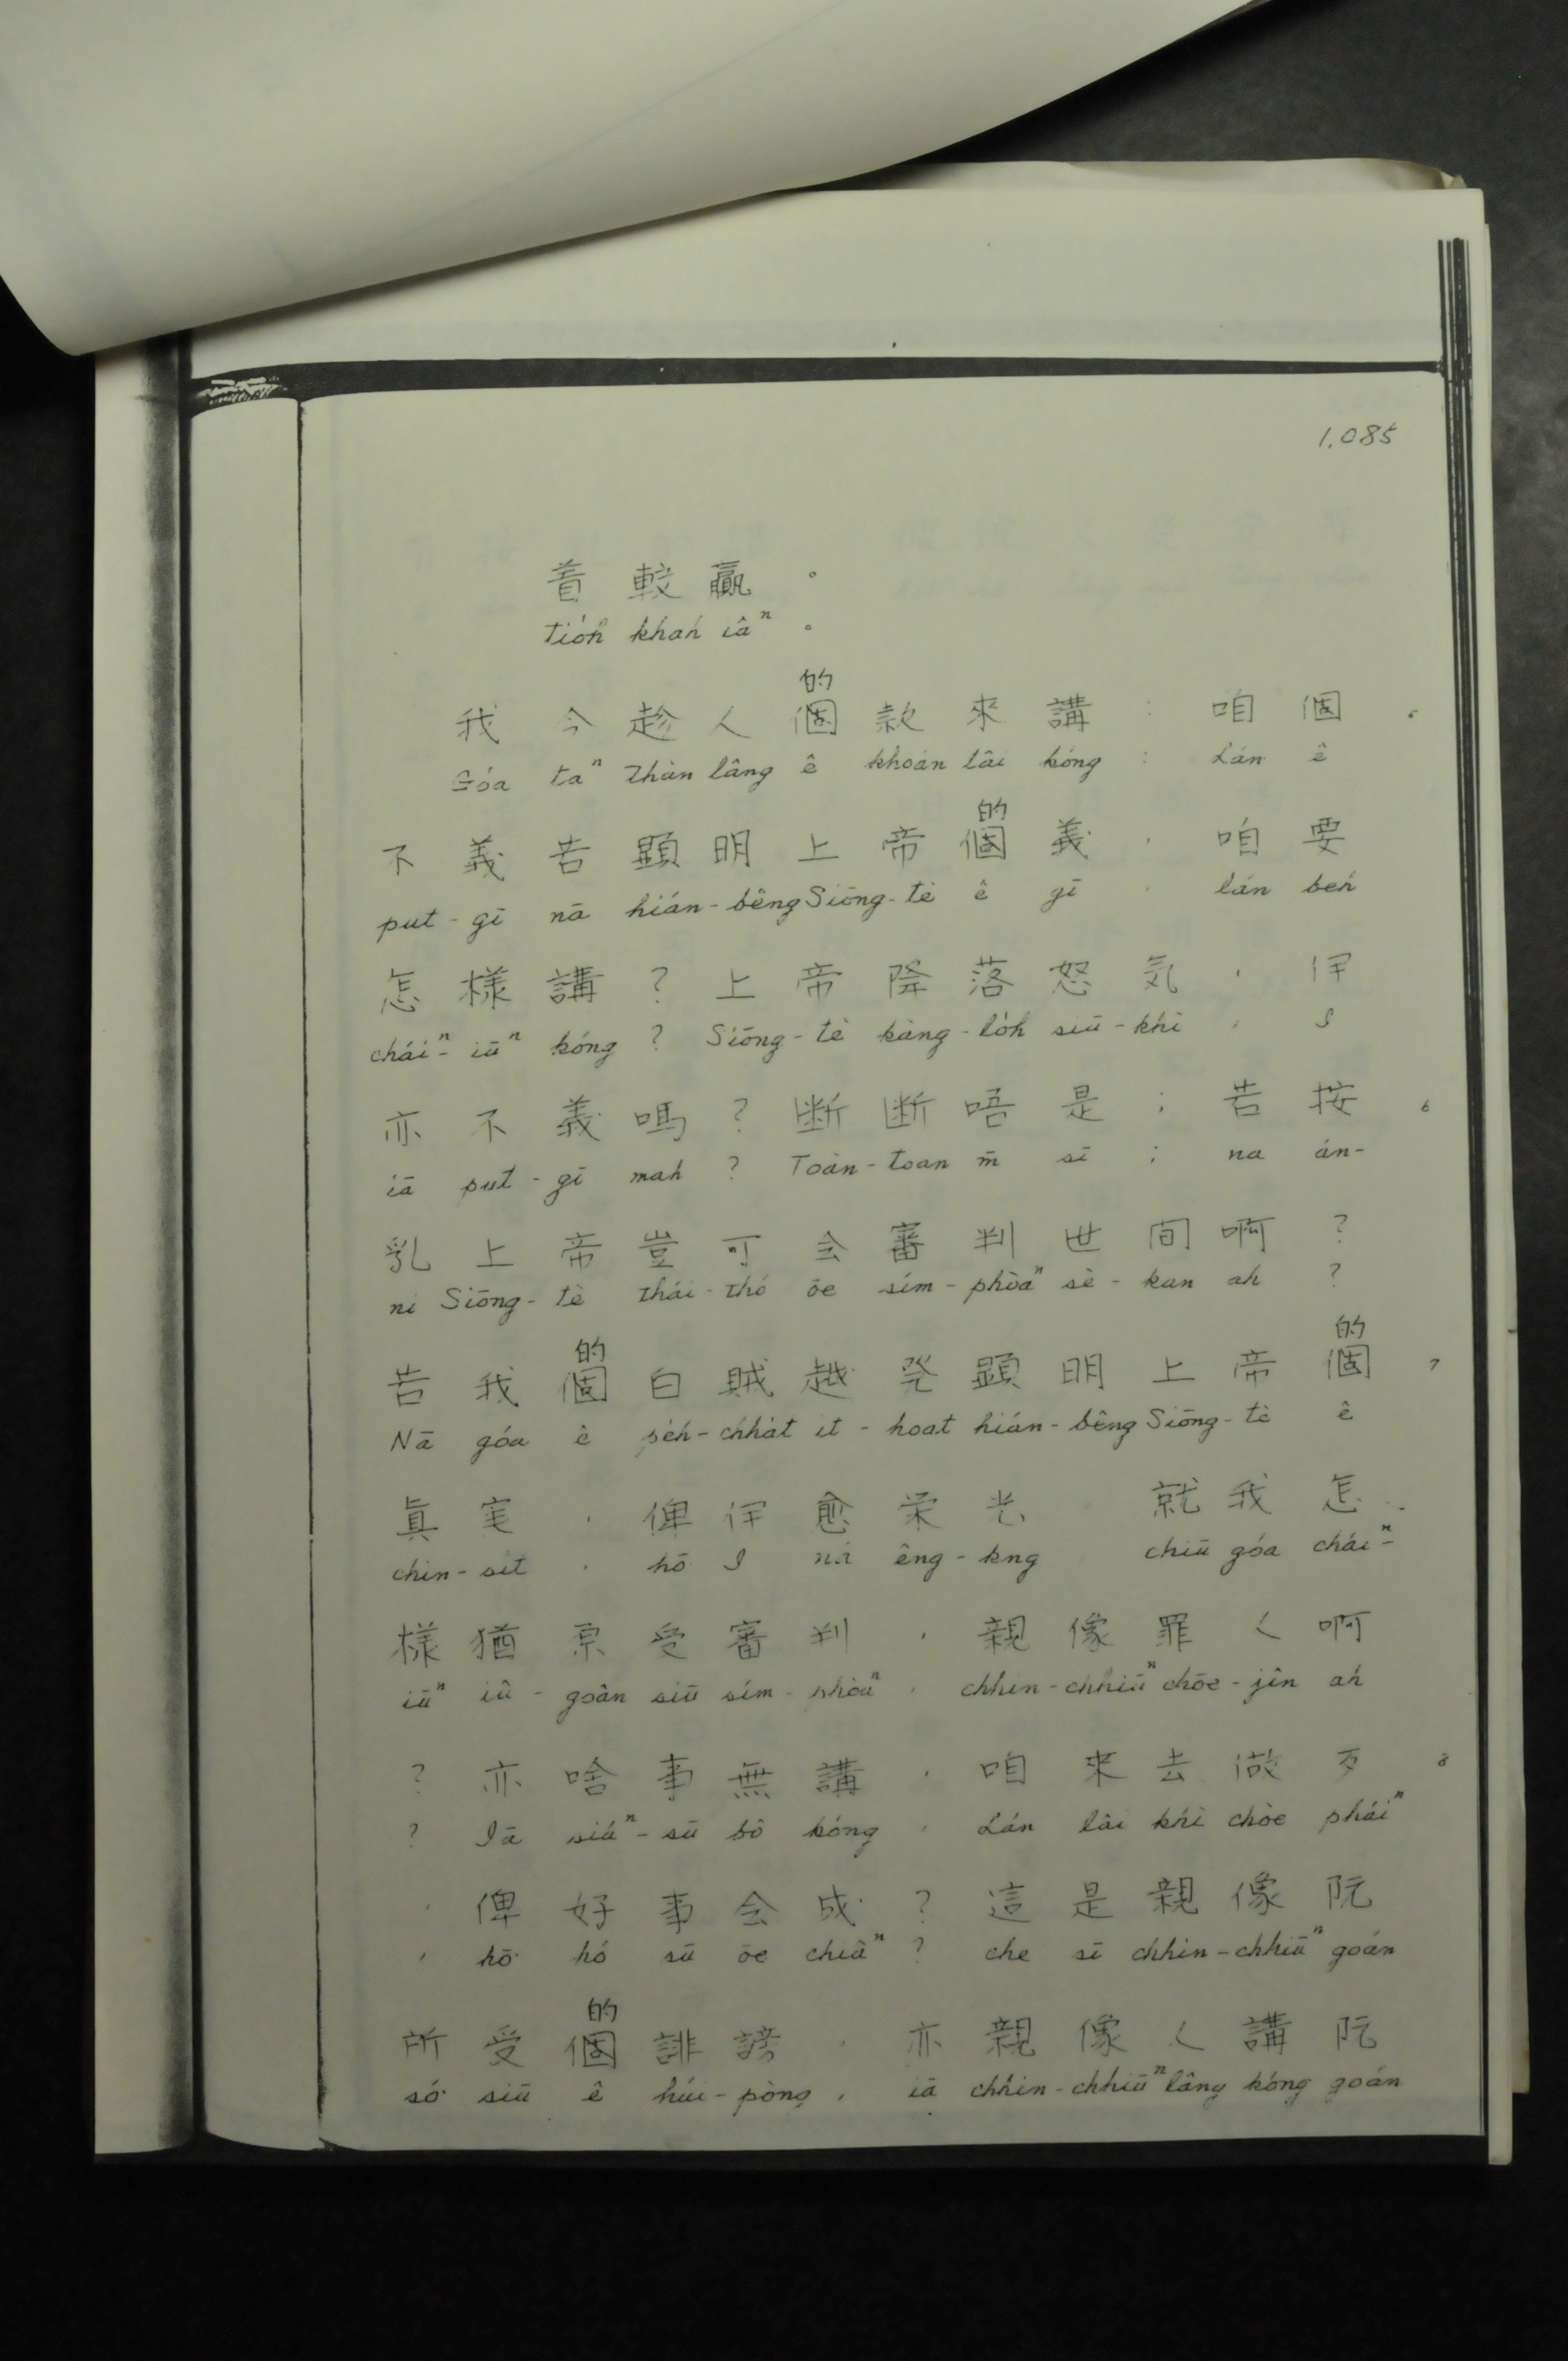 1.085
着較贏。
tio̍h khah iâⁿ。
的
我今趁人個款來講:咱個
Góa taⁿ thàn lâng ê khoán lâi kóng : Lán ê
的
不義若顯明上帝個義,咱要
put-gī nā hián-bêng Siōng-tè ê gī, lán beh
怎樣講?上帝降落怒気,伊
chái^n-iū^n kóng ? Siōng-tè kàng-lo̍h siū-khì, I
亦不義嗎?断断唔是;若按 6
iā put-gī mah ? Toàn-toan m̄ sī ; na án-
乳上帝豈可会審判世间啊?
ni Siōng-tè thái-thó ōe sím-phòaⁿ sè-kan ah ?
的 的
若我個白賊越発顕明上帝個 7
Nā góa ê pe̍h-chha̍t it-hoat hián-bêng Siōng-tè ê
眞実,俾伊愈栄光 就我怎
chin-sit, hō I ná êng-kng chiū góa cháiⁿ-
樣猶原受審判,親像罪人啊
iūⁿ iû-goân siū sím-phòaⁿ, chhin-chhiūⁿ chōe-jîn ah
?亦啥事無講,咱來去做歹 8
? Iā siáⁿ-sū bô kóng, Lán lâi khì chòe pháiⁿ
,俾好事会成?這是親像阮
, hō hó sū ōe chiâⁿ ? che sī chhin-chhiūⁿ goán
的
所受個誹謗,亦親像人講阮
só siū ê húi-pòng, iā chhin-chhiūⁿ lâng kóng goán